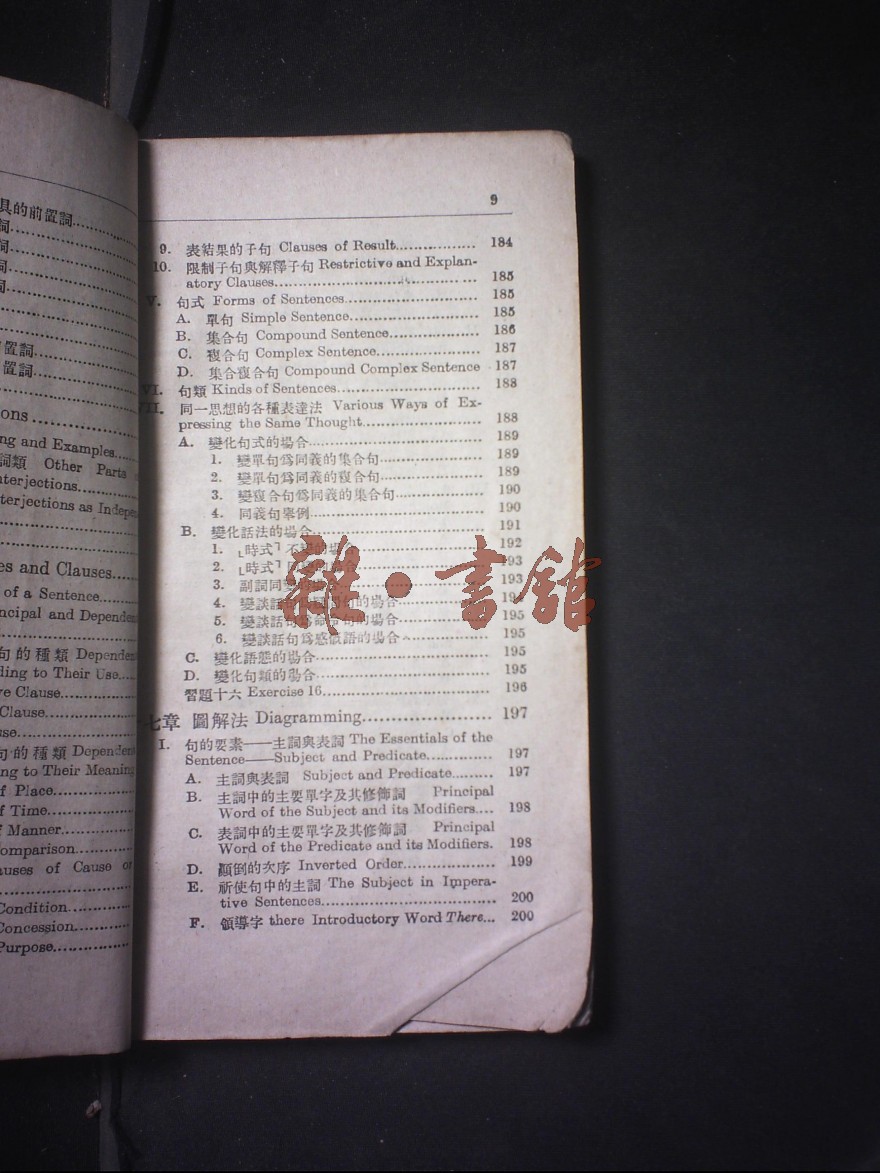 具的前置詞
詞
詞
詞
詞
置詞
置詞
ions
ng and Examples
詞類 Other Parts
nterjections
terjections as Indepen
es and Clauses
of a Sentence
ncipal and Dependent
句的種類 Dependen
ding to Their Use
ve Clause
Clause
use
句的種類 Dependent
ing to Their Meaning
of Place
of Time
f Manner
omparison
auses of Cause or
Condition
Concession
Purpose
9
9. 表結果的子句 Clauses of Result 184
10. 限制子句與解釋子句 Restrictive and Explan-
atory Clauses 185
V. 句式 Forms of Sentences 185
A. 單句 Simple Sentence 185
B. 集合句 Compound Sentence 186
C. 複合句 Complex Sentence 187
D. 集合複合句 Compound Complex Sentence 187
VI. 句類 Kinds of Sentences 188
VII. 同一思想的各種表達法 Various Ways of Ex-
pressing the Same Thought 188
A. 變化句式的場合 189
1. 變單句爲同義的集合句 189
2. 變單句爲同義的複合句 189
3. 變複合句爲同義的集合句 190
4. 同義句舉例 190
B. 變化話法的場合 191
1. 「時式」不變的場合 192
2. 「時式」的場合 193
3. 副詞同變的場合 193
4. 變談話句爲疑問句的場合 194
5. 變談話句爲命令句的場合 195
6. 變談話句爲感歎語的場合 195
C. 變化語態的場合 195
D. 變化句類的場合 195
習題十六 Exercise 16 196
七章 圖解法 Diagramming 197
I. 句的要素——主詞與表詞 The Essentials of the
Sentence——Subject and Predicate 197
A. 主詞與表詞 Subject and Predicate 197
B. 主詞中的主要單字及其修飾詞 Principal
Word of the Subject and its Modifiers 198
C. 表詞中的主要單字及其修飾詞 Principal
Word of the Predicate and its Modifiers. 198
D. 顚倒的次序 Inverted Order 199
E. 祈使句中的主詞 The Subject in Impera-
tive Sentences 200
F. 領導字 there Introductory Word There 200
雜·書館